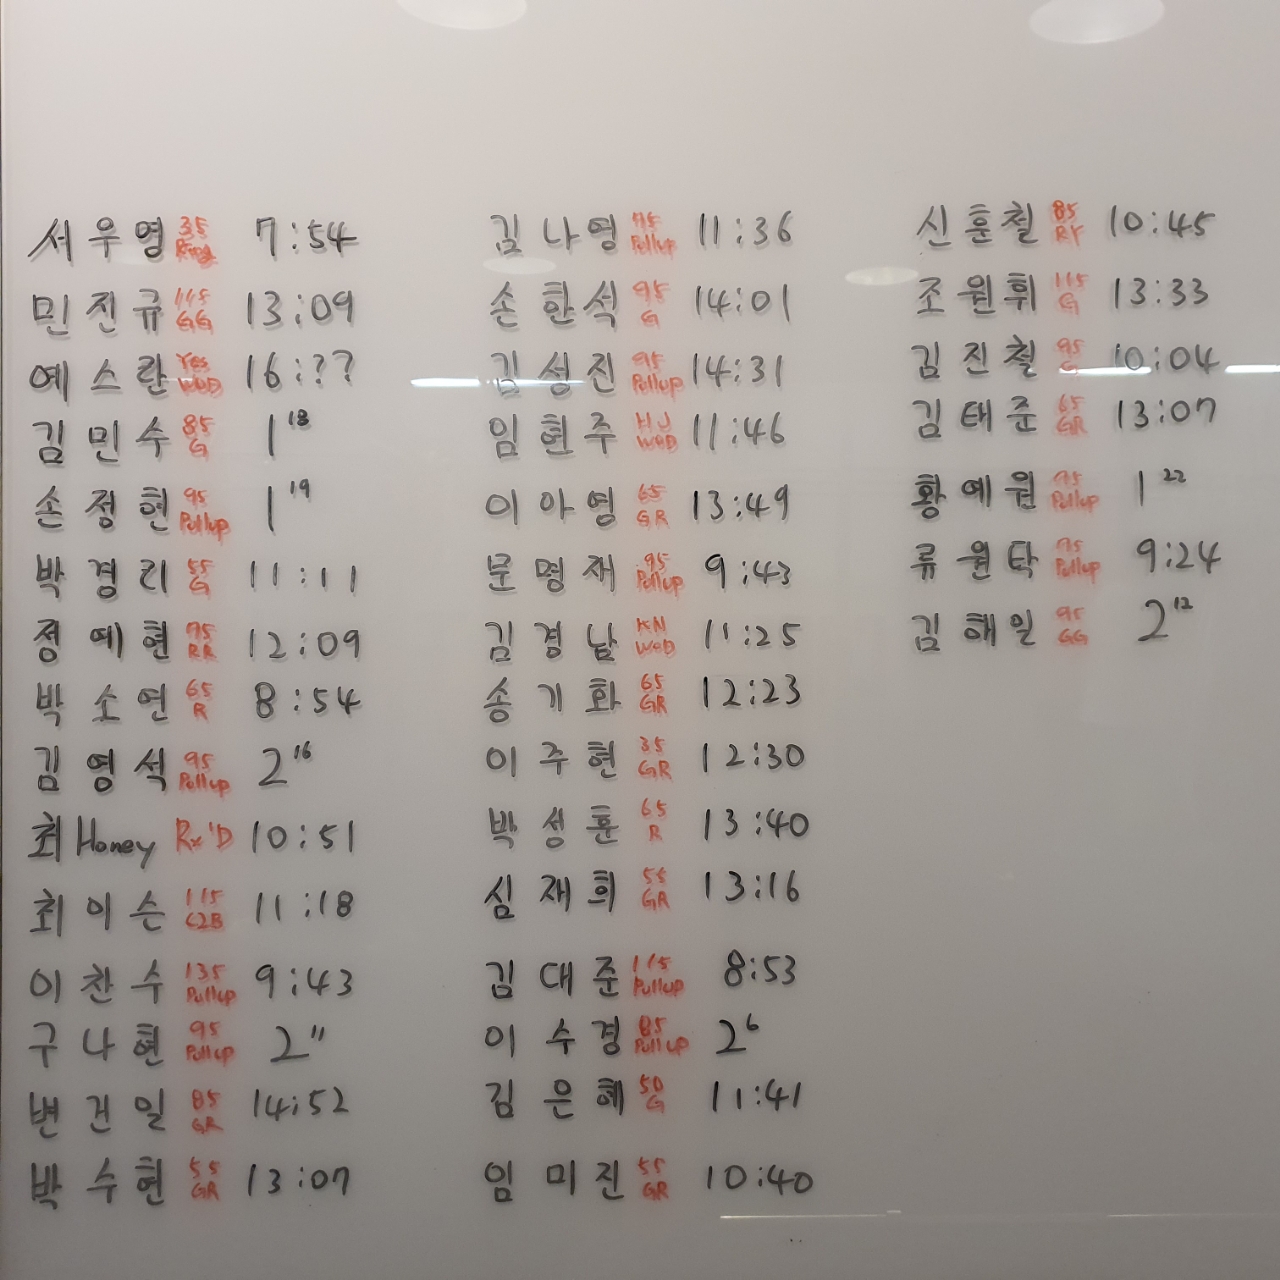 서우영 35 Ring 7:54
민진규 115 GG 13:09
예스란 Yes WOD 16:??
김민수 85 G 1 18
손정현 95 Pullup 1 19
박경리 55 G 11:11
정예현 75 RR 12:09
박소연 65 R 8:54
김영석 95 Pullup 2 16
최Honey Rx'D 10:51
최이슨 115 C2B 11:18
이찬수 135 Pullup 9:43
구나현 95 Pullup 2 11
변건일 85 GR 14:52
박수현 55 GR 13:07
김나영 75 Pullup 11:36
손한석 95 G 14:01
김성진 95 Pullup 14:31
임현주 HJ WOD 11:46
이아영 65 GR 13:49
문명재 95 Pullup 9:43
김경남 KN WOD 11:25
송기화 65 GR 12:23
이주현 35 GR 12:30
박성훈 65 R 13:40
심재희 55 GR 13:16
김대준 115 Pullup 8:53
이수경 85 Pullup 2 6
김은혜 50 G 11:41
임미진 55 GR 10:40
신훈철 85 RY 10:45
조원휘 115 G 13:33
김진철 95 G 10:04
김태준 65 GR 13:07
황예원 75 Pullup 1 22
류원탁 75 Pullup 9:24
김해일 95 GG 2 12